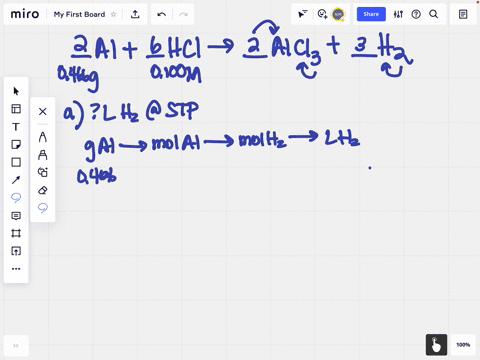 miro My First Board Share
2 Al + 6 HCl → 2 AlCl3 + 3 H2
0.466g 0.100M
a) ? L H2 @ STP
gAl → molAl → molH2 → LH2
0.466
100%